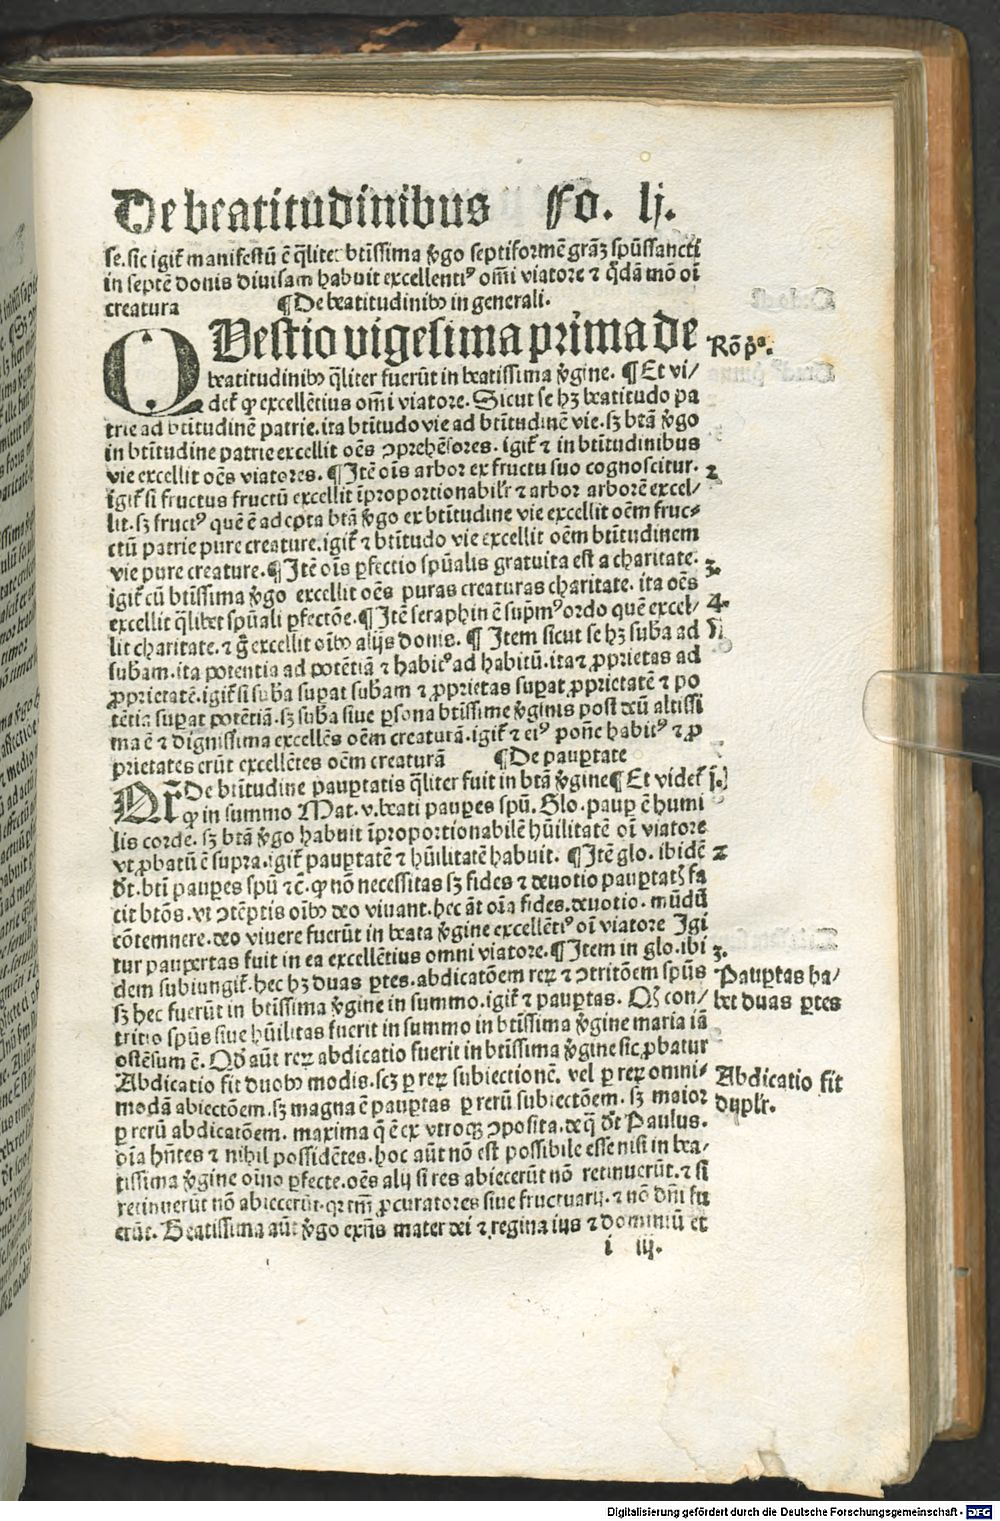 De beatitudinibus Fo. lj.
se. sic igit᷑ manifestū ē q̄liter btissima ꝟgo septiformē grāꝫ spūssancti
in septē donis diuisam habuit excellentiꝰ om̄i viatore ⁊ q̄dā mō oī
creatura ¶ De beatitudinibꝰ in generali.
QVestio vigesima prima de
beatitudinibꝰ q̄liter fuerūt in beatissima ꝟgine. ¶ Et vi/
det᷑ ꝙ excellētius om̄i viatore. Sicut se hꝫ beatitudo pa
trie ad btitudinē patrie. ita btitudo vie ad btitudinē vie. sꝫ btā ꝟgo
in btitudine patrie excellit oēs ꝯprehēsores. igit᷑ ⁊ in btitudinibus
vie excellit oēs viatores. ¶ Itē oīs arbor ex fructu suo cognoscitur.
igit᷑ si fructus fructū excellit īproportionabilr̄ ⁊ arbor arborē excel/
lit. sꝫ fructꝰ quē ē adepta btā ꝟgo ex btitudine vie excellit oēm fruc/
ctū patrie pure creature. igit᷑ ⁊ btitudo vie excellit oēm btitudinem
vie pure creature. ¶ Itē oīs ꝑfectio spūalis gratuita est a charitate.
igit᷑ cū btissima ꝟgo excellit oēs puras creaturas charitate. ita oēs
excellit q̄libet spūali ꝑfectōe. ¶ Itē seraphin ē supmꝰ ordo quē excel/
lit charitate. ⁊ gͦ excellit oībꝰ alijs donis. ¶ Item sicut se hꝫ suba ad
subam. ita potentia ad potētiā ⁊ habitꝰ ad habitū. ita ⁊ ꝓprietas ad
ꝓprietatē. igit᷑ si suba supat subam ⁊ ꝓprietas supat ꝓprietatē ⁊ po
tētia supat potētiā. sꝫ suba siue ꝑsona btissime ꝟginis post deū altissi
ma ē ⁊ dignissima excellēs oēm creaturā. igit᷑ ⁊ eiꝰ pon̄e habitꝰ ⁊ ꝓ
prietates erūt excellētes oēm creaturā ¶ De pauꝑtate
De btitudine pauꝑtatis q̄liter fuit in btā ꝟgine ¶ Et videt᷑
ꝙ in summo Mat. v. beati pauꝑes spū. Glo. pauꝑ ē humi
lis corde. sꝫ btā ꝟgo habuit īproportionabilē hūilitatē oī viatore
vt ꝓbatū ē supra. igit᷑ pauꝑtatē ⁊ hūilitatē habuit. ¶ Itē glo. ibidē
dt. bti pauꝑes spū ⁊c̄. ꝙ nō necessitas sꝫ fides ⁊ deuotio pauꝑtatꝭ fa
cit btōs. vt ꝯtēptis oībꝰ deo viuant. hec āt oīa fides. deuotio. mūdū
cōtemnere. deo viuere fuerūt in beata ꝟgine excellētiꝰ oī viatore Igi
tur pauꝑertas fuit in ea excellētius omni viatore. ¶ Item in glo. ibi
dem subiungit᷑. hec hꝫ duas ꝑtes. abdicatōem reꝝ ⁊ ꝯtritōem spūs
sꝫ hec fuerūt in btissima ꝟgine in summo. igit᷑ ⁊ pauꝑtas. Qꝫ con/
tritio spūs siue hūilitas fuerit in summo in btissima ꝟgine maria iā
ostēsum ē. Qd̄ aūt reꝝ abdicatio fuerit in btissima ꝟgine sic ꝓbatur
Abdicatio fit duobꝰ modis. scꝫ ꝑ reꝝ subiectionē. vel ꝑ reꝝ omni/
modā abiectōem. sꝫ magna ē pauꝑtas ꝑ rerū subiectōem. sꝫ maior
ꝑ rerū abdicatōem. maxima q̄ ē ex vtroqꝫ ꝯposita. de q̄ dt Paulus.
oīa hn̄tes ⁊ nihil possidētes. hoc aūt nō est possibile esse nisi in bea/
tissima ꝟgine oīno ꝑfecte. oēs alij si res abiecerūt nō retinuerūt. ⁊ si
retinuerūt nō abiecerūt. qꝛ tm̄ ꝓcuratores siue fructuarij. ⁊ nō dn̄i fu
erūt. Beatissima aūt ꝟgo exn̄s mater dei ⁊ regina ius ⁊ dominiū et
i iij.
Rō pͣ.
2
3.
4.
5
j.
2
3.
Pauꝑtas ha/
bet duas ꝑtes
Abdicatio fit
duplr̄.
Digitalisierung gefördert durch die Deutsche Forschungsgemeinschaft - DFG